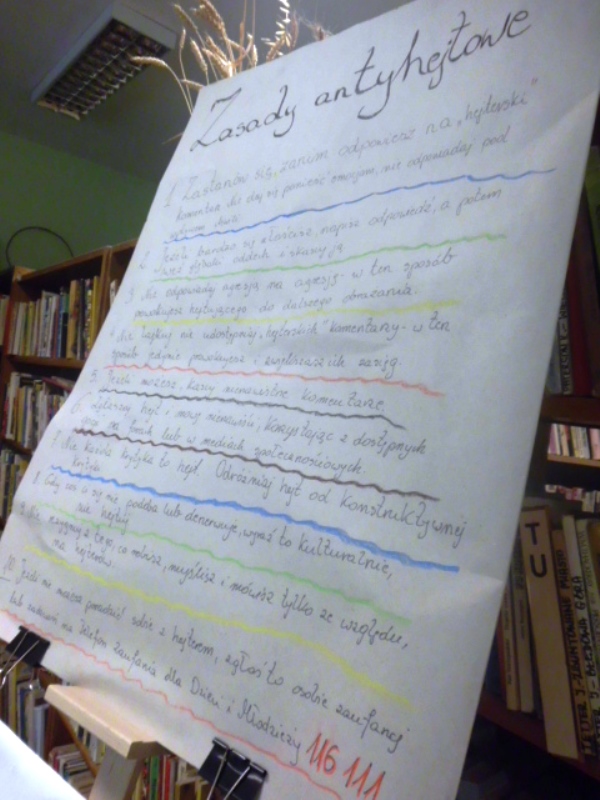 Zasady antyhejtowe
1. Zastanów się, zanim odpowiesz na „hejterski”
komentarz. Nie daj się ponieść emocjom, nie odpowiadaj pod
wpływem
2. Jeżeli bardzo się złościsz, napisz odpowiedź, a potem
weź głęboki oddech i skasuj ją
3. Nie odpowiadaj agresją na agresję - w ten sposób
prowokujesz hejtującego do dalszego obrażania.
4. Nie lajkuj nie udostępniaj „hejterskich” komentarzy - w ten
sposób jedynie prowokujesz i zwiększasz ich zasięg.
5. Jeżeli możesz, kasuj nienawistne komentarze.
6. Zgłaszaj hejt i mowę nienawiści, korzystając z dostępnych
opcji na lub w mediach społecznościowych.
7. Nie każda krytyka to hejt. Odróżniaj hejt od konstruktywnej
krytyki
8. Gdy coś ci się nie podoba lub denerwuje, wyraź to kulturalnie,
nie hejtuj
9. Nie rezygnuj z tego, co robisz, myślisz i mówisz tylko ze względu,
na hejterów.
10. Jeżeli nie możesz poradzić sobie z hejterem, zgłoś to osobie zaufanej
lub zadzwoń na Telefon zaufania dla Dzieci i Młodzieży 116 111
TU